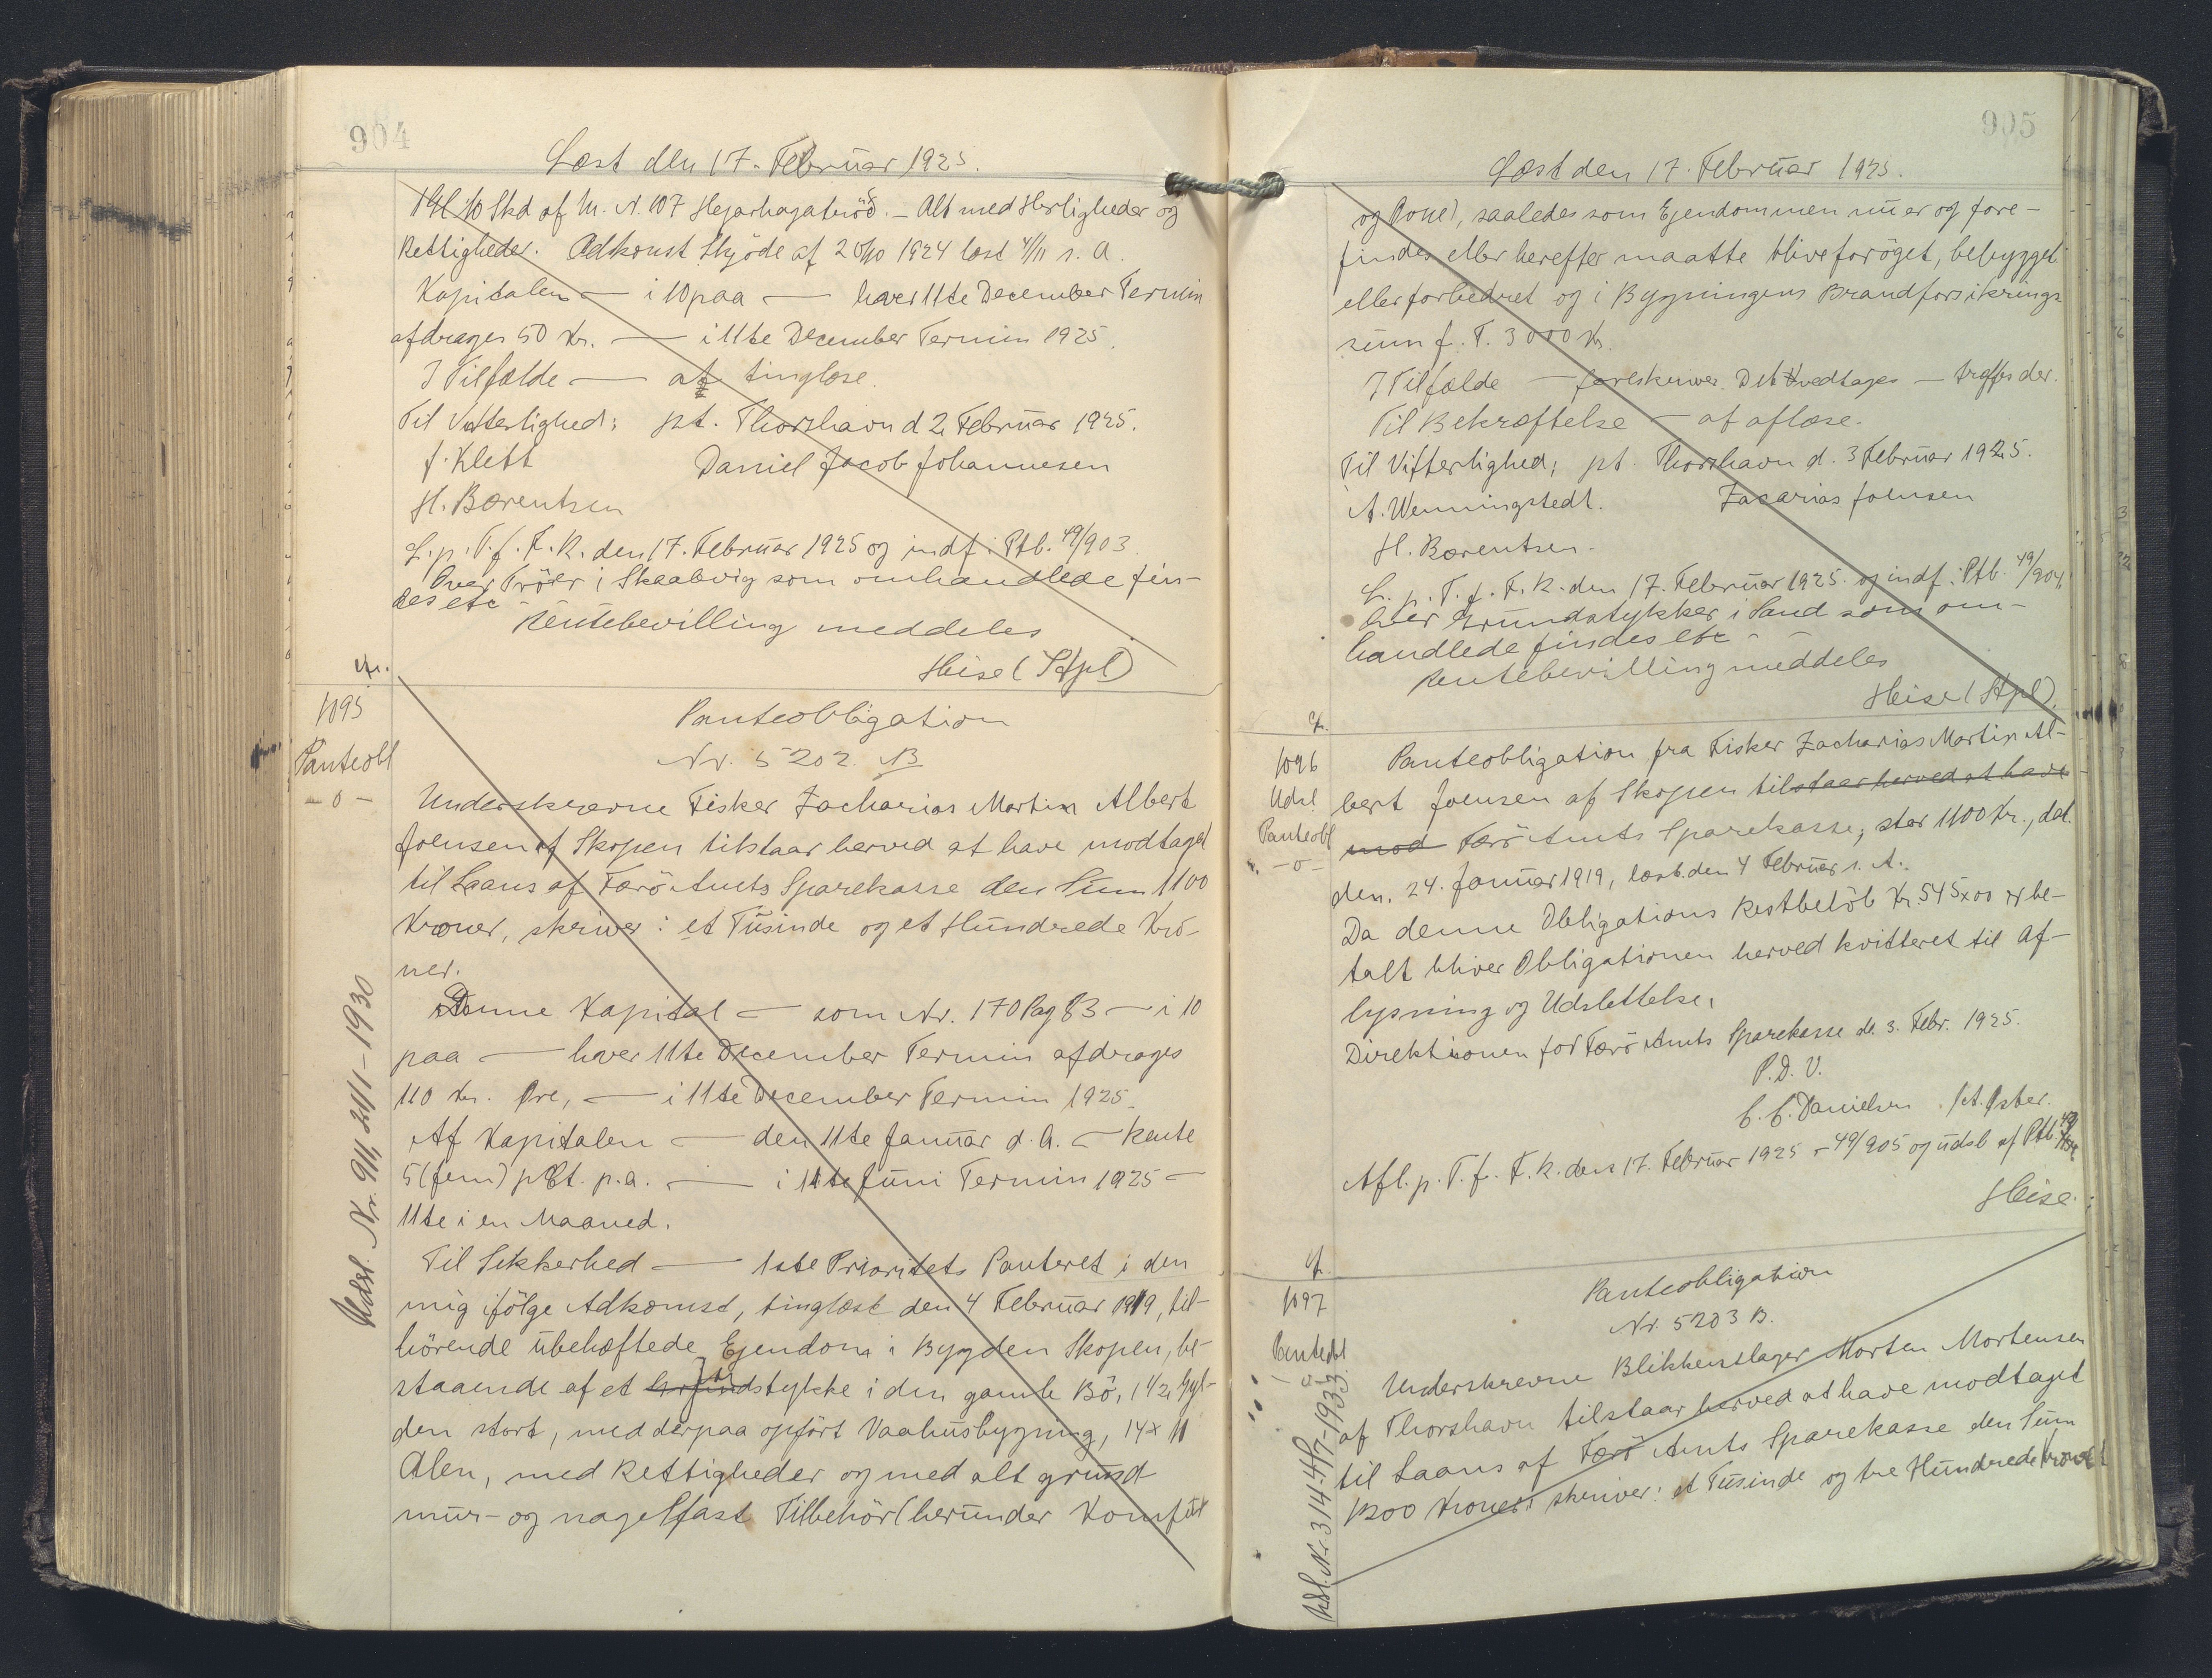 904
Læst den 17. Februar 1925.
10 Skd af M. N. 107 Hejarhagatröð. – Alt med Herligheder og
Rettigheder. Adkomst Skjöde af 20/10 1924 læst 4/11 s. A.
Kapitalen — i 10 paa — hver 11te December Termin
afdrages 50 Kr. — i 11te December Termin 1925.
I Tilfælde — at tinglæse.
Til Vitterlighed: pt. Thorshavn d 2 Februar 1925.
J. Klett Daniel Jacob Johannesen
H. Bærentsen
L. p. T. f. F. R. den 17. Februar 1925 og indf i Ptb. 49/903.
Over Tröer i Skaalevig som omhandlede fin-
des etc
Rentebevilling meddeles
Heise (Stpl)
cfr.
1095
Panteobl
– o –
Udsl. Nr. 911, 21/1 – 1930
Panteobligation
Nr. 5202. B
Underskrevne Fisker Zacharias Martin Albert
Joensen af Skopen tilstaar herved at have modtaget
til Laans af Færö Amts Sparekasse den Sum 1100
Kroner, skriver: et Tusinde og et Hundrede Kro-
ner.
Denne Kapital — som Nr. 170 Pag 83 — i 10
paa — hver 11te December Termin afdrages
110 Kr. Øre, — i 11te December Termin 1925.
Af Kapitalen — den 11te Januar d. A. — Rente
5 (fem) pCt. p.a. — i 11te Juni Termin 1925 –
11te i en Maaned.
Til Sikkerhed — 1ste Prioritets Panteret i den
mig ifölge Adkomst, tinglæst den 4 Februar 1919, til-
hörende ubehæftede Ejendom i Bygden Skopen, be-
staaende af et Grundstykke i den gamle Bö, 1 1/2 Gyl-
den stort, med derpaa opfört Vaahusbygning, 14 x 11
Alen, med Rettigheder og med alt grund
mur- og nagelfast Tilbehör (herunder Komfur
905
Læst den 17. Februar 1925.
og Ovne), saaledes som Ejendommen nu er og fore-
findes eller herefter maatte blive foröget, bebygget
eller forbedret og i Bygningens Brandforsikrings
sum f. T. 3000 Kr.
I Tilfælde — foreskriver. Det vedtages — træffes der.
Til Bekræftelse — at aflæse.
Til Vitterlighed; pt. Thorshavn d. 3 Februar 1925.
A. Wenningstedt. Zacarias Joensen
H. Bærentsen.
L. p. T. f. F. R. den 17. Februar 1925. og indf i Ptb. 49/904
Over Grundstykker i Sand som om-
handlede findes etc
Rentebevilling meddeles
Heise (Stpl).
cf.
1096
Udsl
Panteobl
– o –
Panteobligation fra Fisker Zacharias Martin Al-
bert Joensen af Skopen tilstaar herved at have
mod Færö Amts Sparekasse, stor 1100 Kr., dat.
den. 24. Januar 1919, læst den 4 Februar s. A.
Da denne Obligations Restbelöb Kr. 545 x 00 er be-
talt bliver Obligationen herved kvitteret til Af-
lysning og Udslettelse.
Direktionen for Færö Amts Sparekasse d. 3. Febr. 1925.
P. D. V.
C. C. Danielsen /A. Øster.
Afl. p. T. f. F. R. den 17. Februar 1925 – 49/905 og udsl af Ptb.
Heise.
cf.
1097
Panteobl
– o –
Udsl. Nr. 314 – 4/7 – 1933.
Panteobligation
Nr. 5203 B.
Underskrevne Blikkenslager Morten Mortensen
af Thorshavn tilstaar herved at have modtaget
til Laans af Færö Amts Sparekasse den Sum
1300 Kroner: skriver: et Tusinde og tre Hundrede Kroner